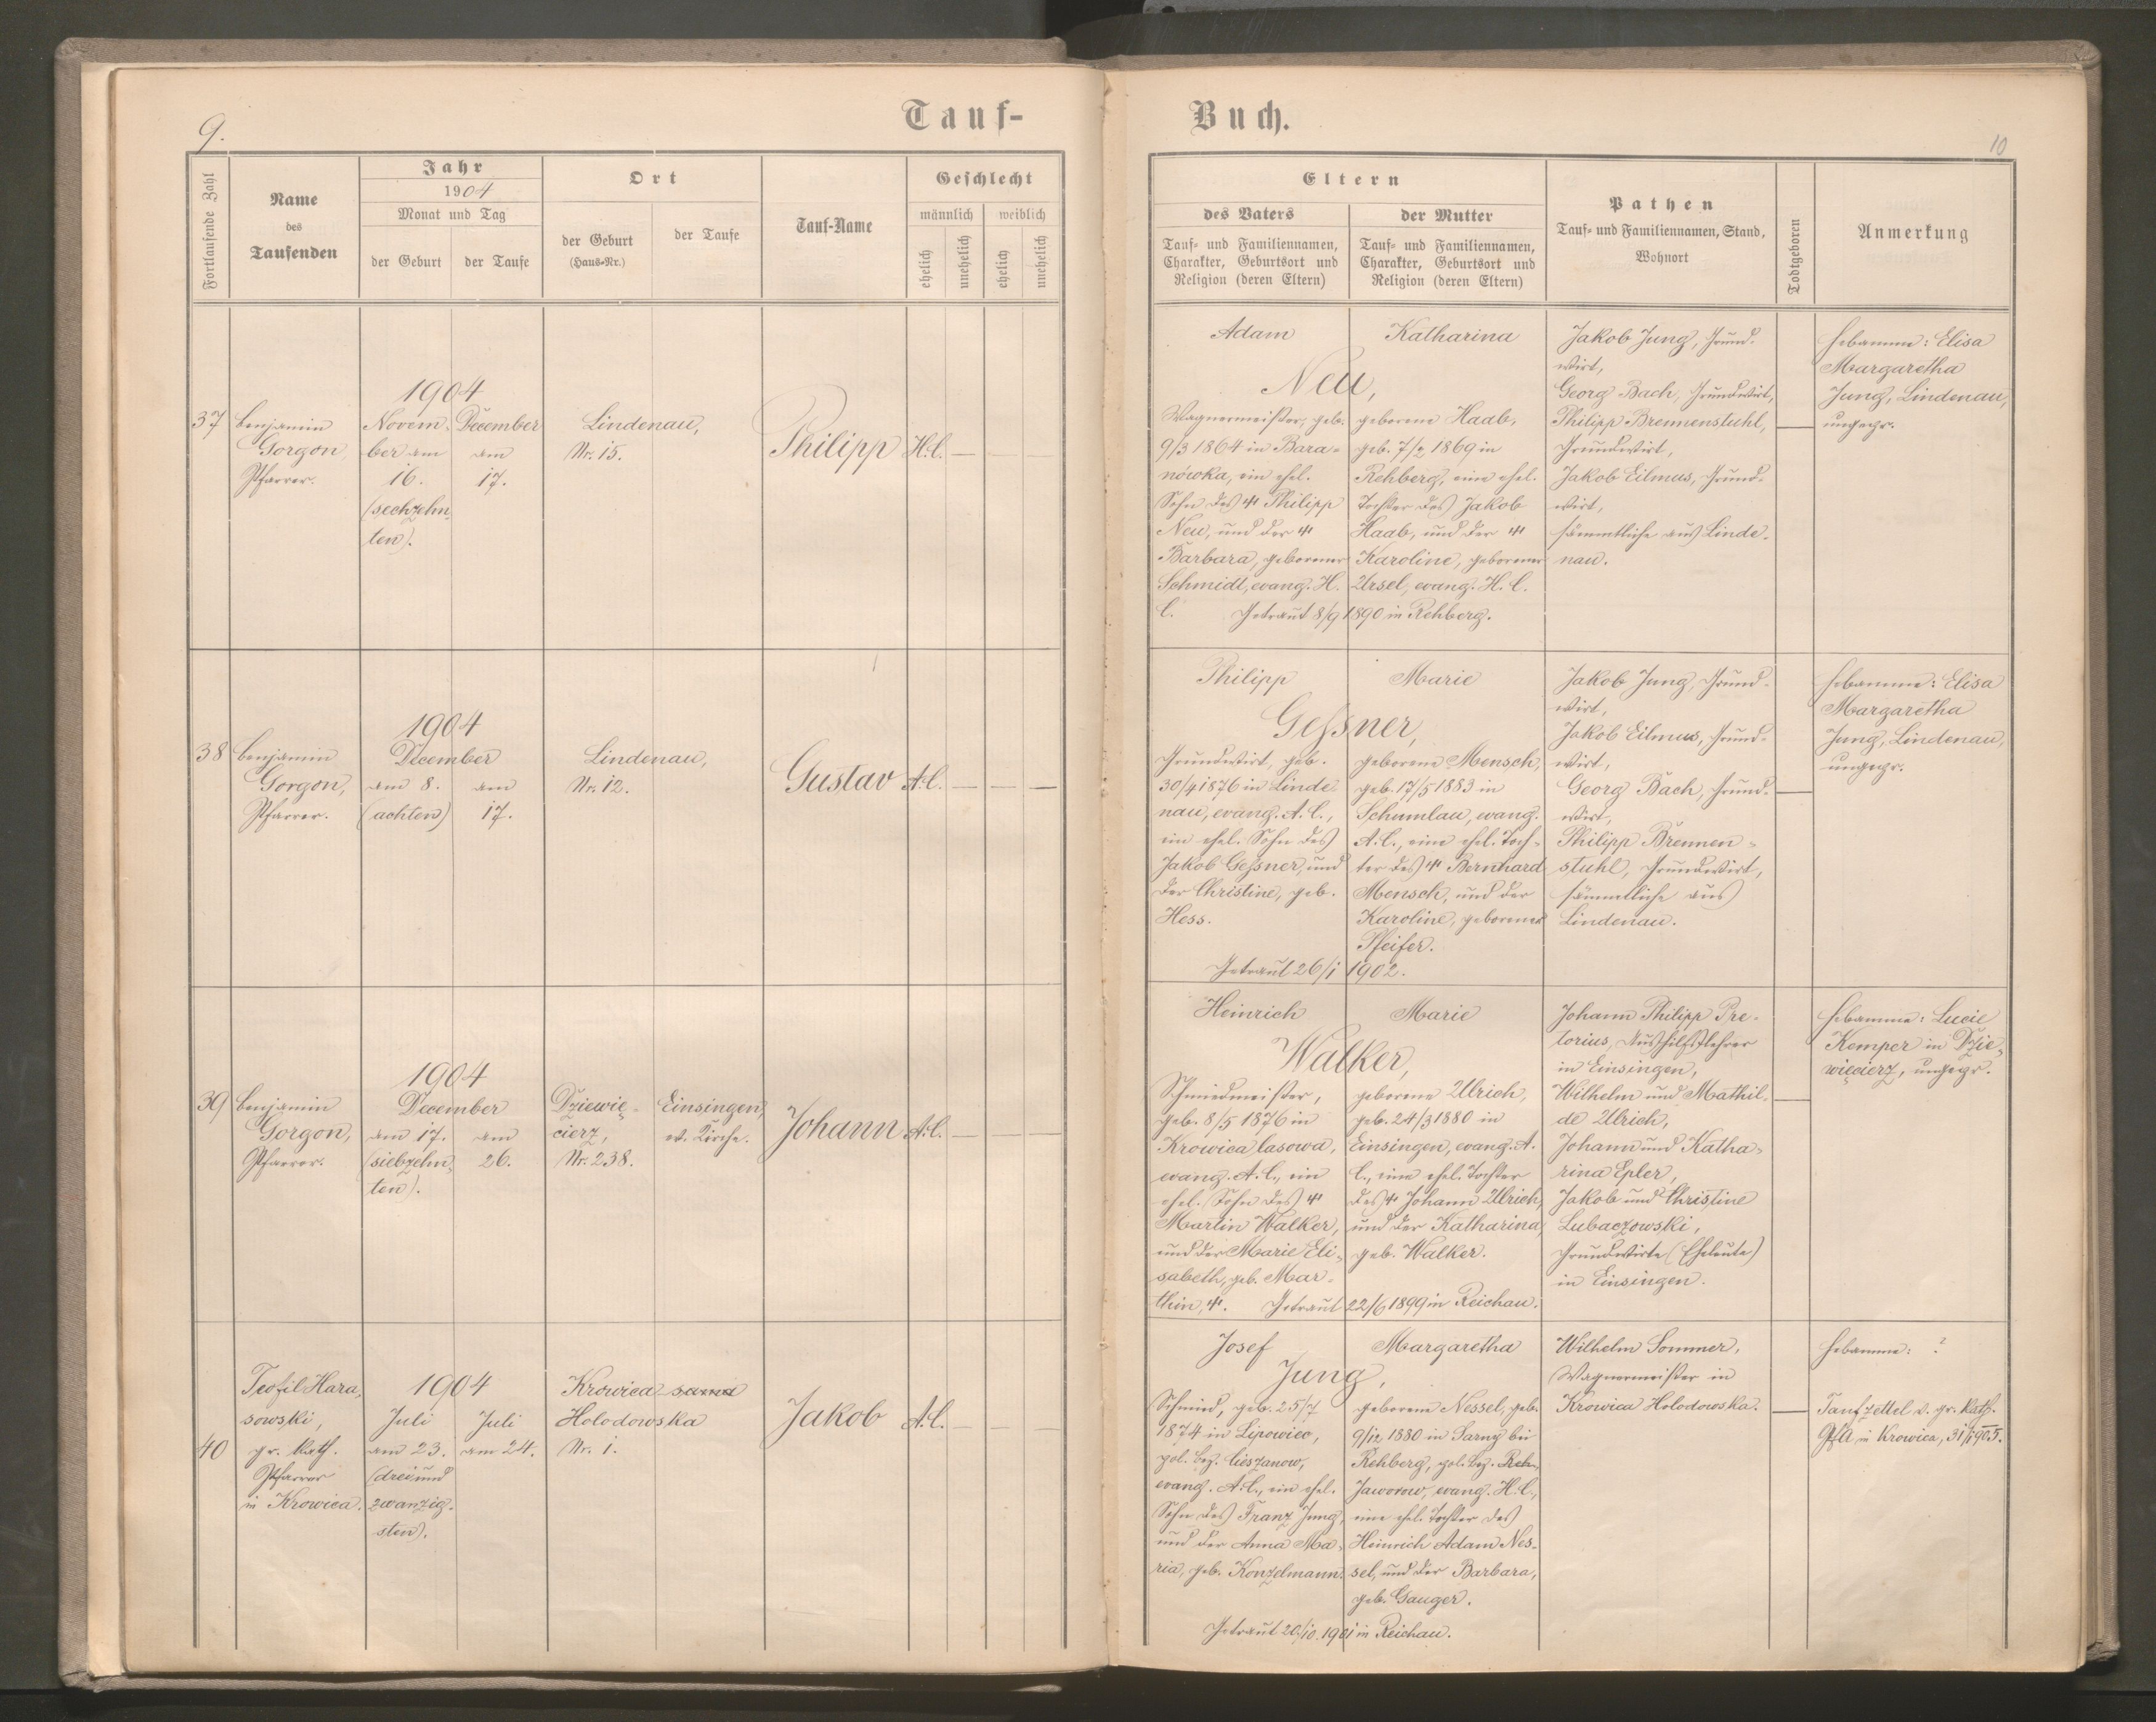 9.
Tauf-
Fortlaufende Zahl
Name
des
Taufenden
Jahr
1904
Monat und Tag
der Geburt
der Taufe
Ort
der Geburt
(Haus-Nr.)
der Taufe
Tauf-Name
Geschlecht
männlich
weiblich
ehelich
unehelich
ehelich
unehelich
37
Benjamin
Gorgon,
Pfarrer.
1904
Novem-
ber am
16.
(sechzehn-
ten).
December
am
17.
Lindenau,
Nr. 15.
Philipp
H.C.
38
Benjamin
Gorgon,
Pfarrer.
1904
December
am 8.
(achten)
am
17.
Lindenau,
Nr. 12.
Gustav
A.C.
39
Benjamin
Gorgon,
Pfarrer.
1904
December
am 17.
(siebzehn-
ten).
am
26.
Dziewię-
cierz,
Nr. 238.
Einsingen,
ev. Kirche.
Johann
A.C.
40
Teofil Hara-
sowski,
gr. kath.
Pfarrer
in Krowica.
1904
Juli
am 23.
(dreiund
zwanzig-
sten).
Juli
am 24.
Krowica sama
Holodowska
Nr. 1.
Jakob
A.C.
Buch.
10
Eltern
des Vaters
Tauf- und Familiennamen,
Charakter, Geburtsort und
Religion (deren Eltern)
der Mutter
Tauf- und Familiennamen,
Charakter, Geburtsort und
Religion (deren Eltern)
Pathen
Tauf- und Familiennamen, Stand,
Wohnort
Todtgeboren
Anmerkung
Adam
Katharina
Neu,
Wagnermeister, geb.
9/3 1864 in Bara-
nówka, ein ehel.
Sohn des Philipp
Neu, und der
Barbara, geborener
Schmidt, evang. H.
C.
geborene Haab,
geb. 7/2 1869 in
Rehberg, eine ehel.
Tochter des Jakob
Haab, und der
Karoline, geborener
Ursel, evang. H. C.
Getraut 8/9 1890 in Rehberg.
Jakob Jung, Grund-
wirt,
Georg Bach, Grundwirt,
Philipp Brennenstuhl,
Grundwirt,
Jakob Eilmus, Grund-
wirt,
sämmtliche aus Linde-
nau.
Hebamme: Elisa
Margaretha
Jung, Lindenau,
ungepr.
Philipp
Marie
Gessner,
Grundwirt, geb.
30/4 1876 in Linde-
nau, evang. A. C.,
ein ehel. Sohn des
Jakob Gessner, und
der Christine, geb.
Hess.
geborene Mensch,
geb. 17/5 1883 in
Schumlau, evang.
A. C., eine ehel. Toch-
ter des Bernhard
Mensch, und der
Karoline, geborener
Pfeifer.
Getraut 26/1 1902.
Jakob Jung, Grund-
wirt,
Jakob Eilmus, Grund-
wirt,
Georg Bach, Grund-
wirt,
Philipp Brennen-
stuhl, Grundwirt,
sämmtliche aus
Lindenau.
Hebamme: Elisa
Margaretha
Jung, Lindenau,
ungepr.
Heinrich
Marie
Walker,
Schmiedmeister,
geb. 8/5 1876 in
Krowica lasowa,
evang. A. C., ein
ehel. Sohn des
Martin Walker,
und der Marie Eli-
sabeth, geb. Mar-
thin,
geborene Ulrich,
geb. 24/3 1880 in
Einsingen, evang. A.
C., eine ehel. Tochter
des Johann Ulrich,
und der Katharina,
geb. Walker.
Getraut 22/6 1899 in Reichau.
Johann Philipp Pre-
torius, Aushilfslehrer
in Einsingen,
Wilhelm und Mathil-
de Ulrich,
Johann und Katha-
rina Epler,
Jakob und Christine
Lubaczowski,
Grundwirte (Eheleute)
in Einsingen.
Hebamme: Lucie
Kemper in Dzie-
więcierz, ungepr.
Josef
Margaretha
Jung,
Schmied, geb. 25/7
1874 in Lipowiec,
pol. Bez. Cieszanow,
evang. A. C., ein ehel.
Sohn des Franz Jung,
und der Anna Ma-
ria, geb. Konzelmann.
geborene Nessel, geb.
9/12 1880 in Sarny bei
Rehberg, pol. Bez. Reh-
Jaworow, evang. H. C.,
eine ehel. Tochter des
Heinrich Adam Nes-
sel, und der Barbara,
geb. Gauger.
Getraut 20./10. 1901 in Reichau.
Wilhelm Sommer,
Wagnermeister in
Krowica Holodowska.
Hebamme: ?
Taufzettel d. gr. kath.
PfA. in Krowica, 31/1 1905.